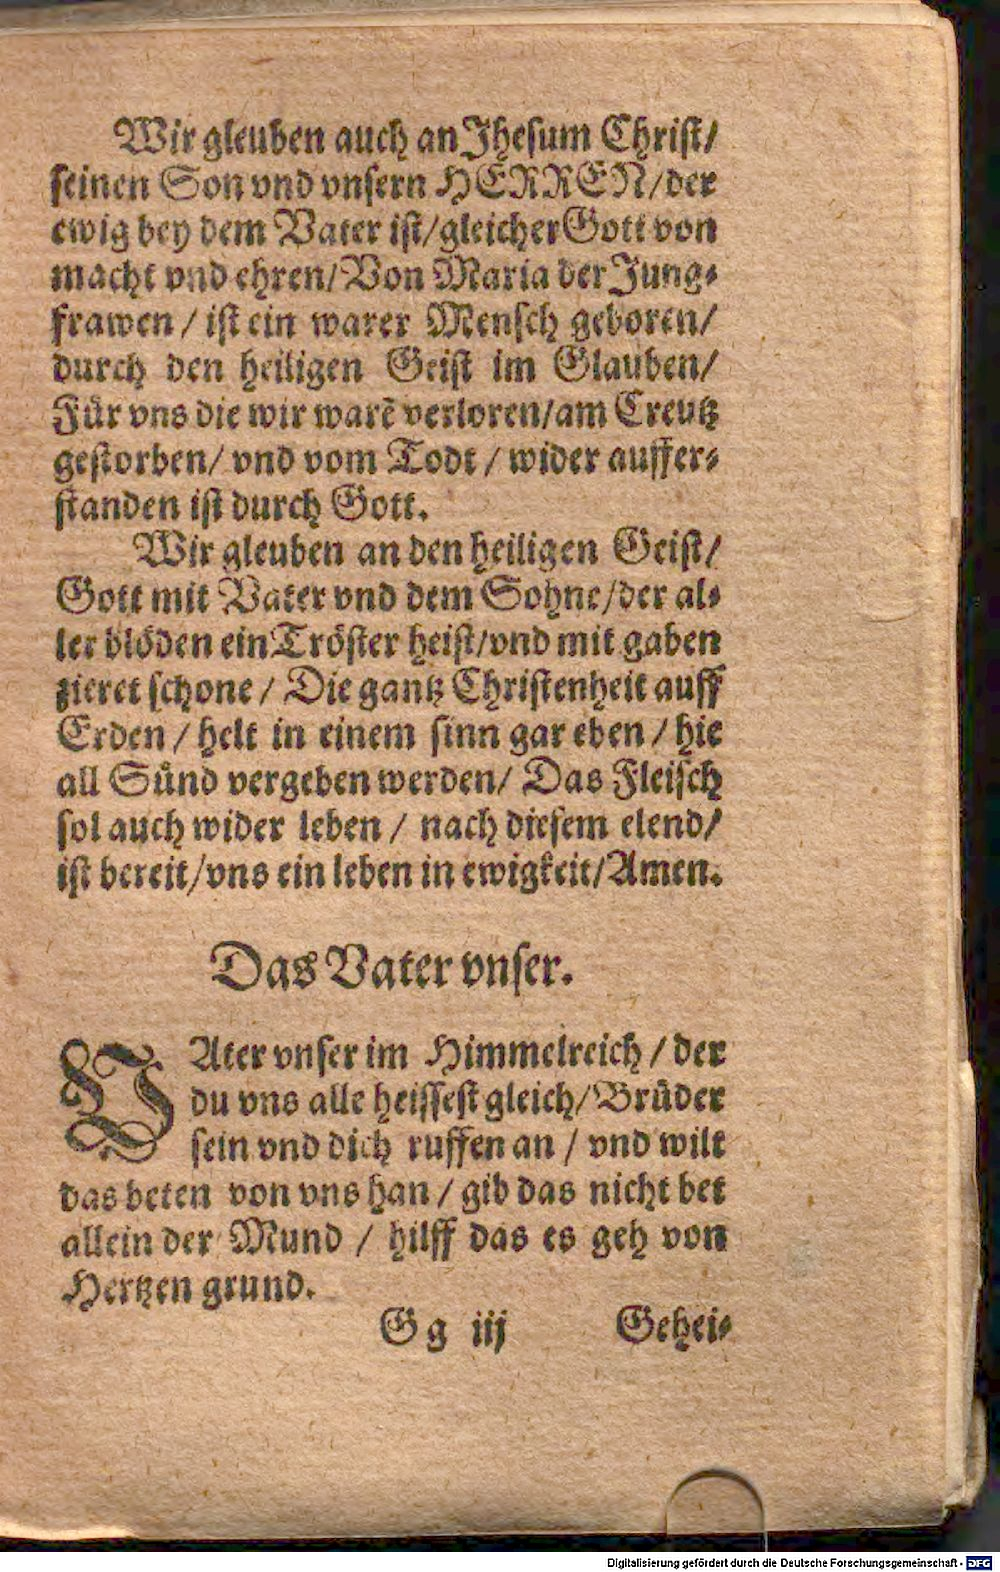 Wir gleuben auch an Jhesum Christ/
seinen Son vnd vnsern HERREN/der
ewig bey dem Vater ist/gleicher Gott von
macht vnd ehren/Von Maria der Jung⸗
frawen / ist ein warer Mensch geboren/
durch den heiligen Geist im Glauben/
Für vns die wir warẽ verloren/am Creutz
gestorben/ vnd vom Todt / wider auffer⸗
standen ist durch Gott.
Wir gleuben an den heiligen Geist/
Gott mit Vater vnd dem Sohne/der al⸗
ler blöden ein Tröster heist/vnd mit gaben
zieret schone / Die gantz Christenheit auff
Erden / helt in einem sinn gar eben / hie
all Sünd vergeben werden/ Das Fleisch
sol auch wider leben / nach diesem elend/
ist bereit/vns ein leben in ewigkeit/Amen.
Das Vater vnser.
VAter vnser im Himmelreich / der
du vns alle heissest gleich/Brüder
sein vnd dich ruffen an / vnd wilt
das beten von vns han / gib das nicht bet
allein der Mund / hilff das es geh von
Hertzen grund.
Gg iij Gehei⸗
Digitalisierung gefördert durch die Deutsche Forschungsgemeinschaft - DFG